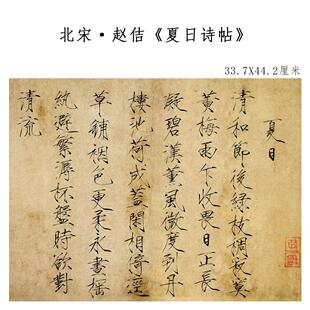 北宋·赵佶《夏日诗帖》
33.7X44.2厘米
夏日
清和節後綠枝稠寂寞
黃梅雨乍收畏日正長
凝碧漢薰風微度到丹
樓池荷成蓋閑相倚逕
草鋪裀色更柔永晝搖
紈避繁溽杯盤時欲對
清流